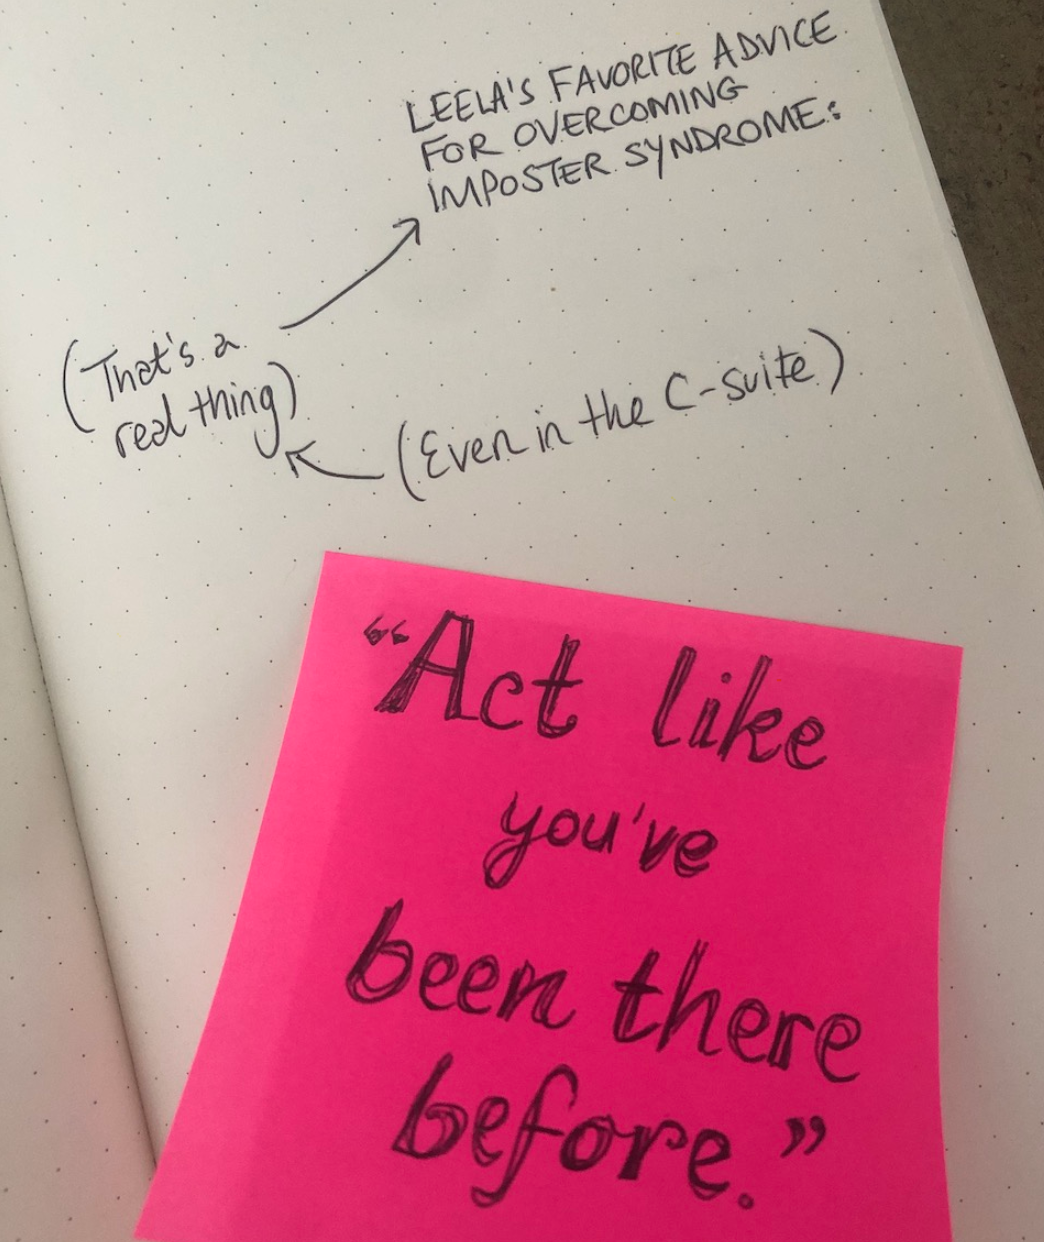 LEELA'S FAVORITE ADVICE
FOR OVERCOMING
IMPOSTER SYNDROME:
(That's a
real thing)
(Even in the C-suite)
“Act like
you've
been there
before.”